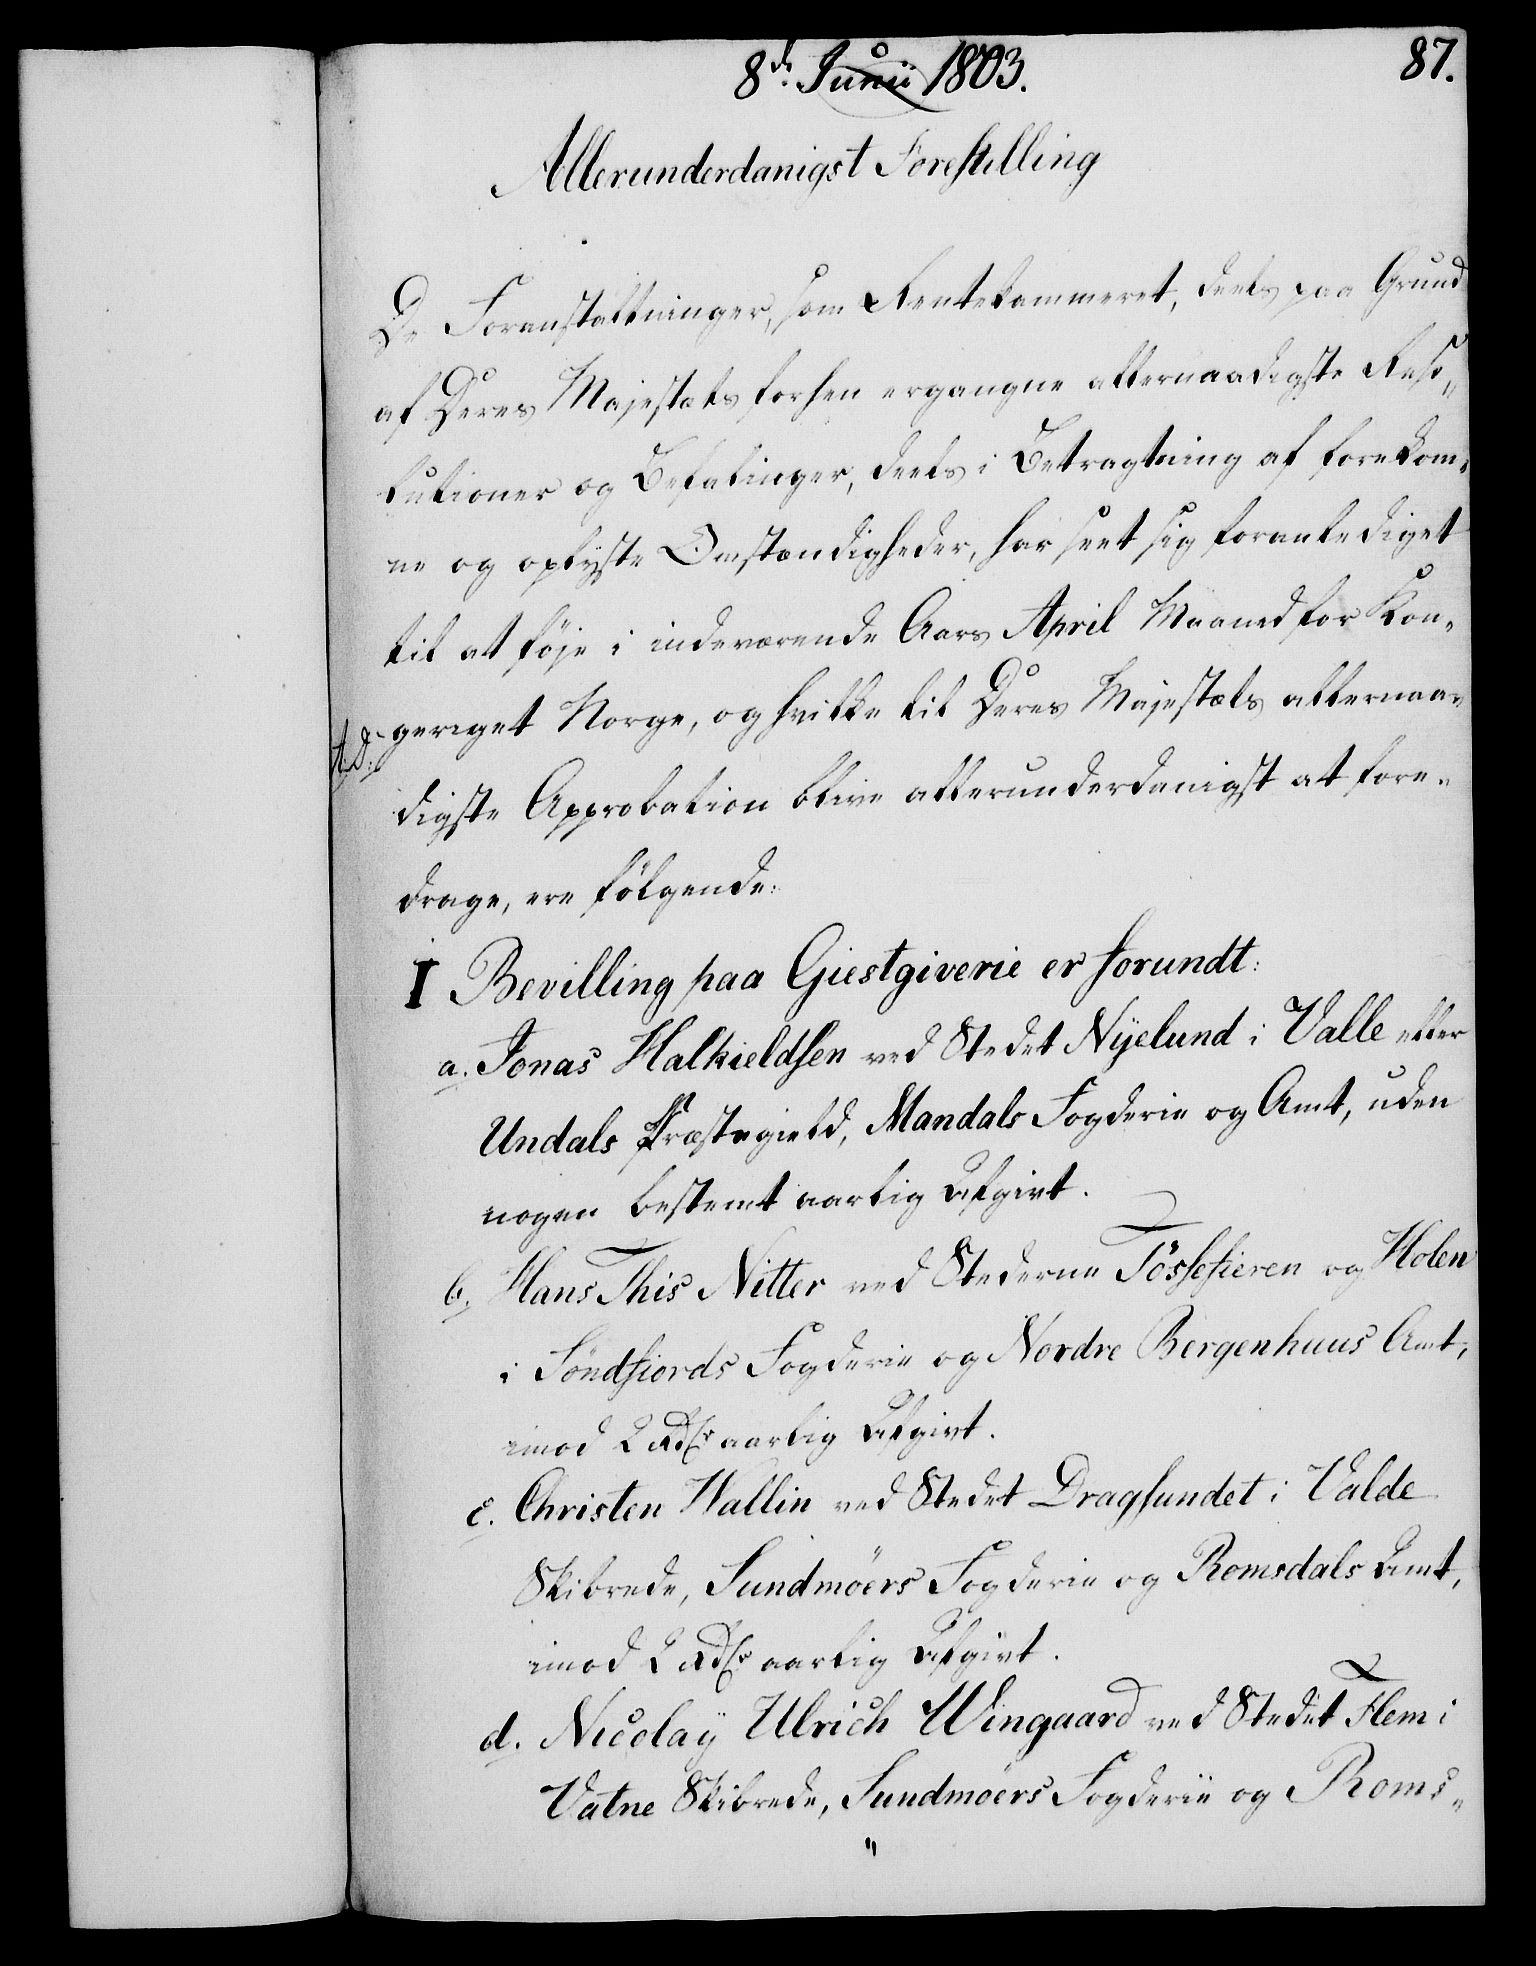 8d. Junii 1803.
87.
Allerunderdanigst Forestilling
De Foranstaltninger, som Rentekammeret, deels paa Grund
af Deres Majestæts forhen ergangne allernaadigste Reso„
lutioner og Befalinger, deels i Betragtning af forekom„
ne og oplyste Omstændigheder, har seet sig foranlediget
til at föje i indeværende Aars April Maaned for Kon„
geriget Norge, og hvilke til Deres Majestæts allernaa„
digste Approbation blive allerunderdanigst at fore„
drage, ere fölgende:
I Bevilling paa Giestgiverie er forundt:
a. Jonas Halkieldsen ved Stedet Nÿelund i Valle eller
Undals Præstegield, Mandals Fogderie og Amt, uden
nogen bestemt aarlig Afgivt.
b. Hans This Nitter ved Stederne Fössefieren og Holen
i Söndfiords Fogderie og Nordre Bergenhuus Amt,
imod 2 Rdlr aarlig Afgivt.
c. Christen Wallin ved Stedet Dragsundet i Valde
Skibrede, Sundmöers Fogderie og Romsdals Amt,
imod 2 Rdlr aarlig Afgivt.
d. Nicolaÿ Ulrich Wingaard ved Stedet Flem i
Vatne Skibrede, Sundmöers Fogderie og Roms„
"